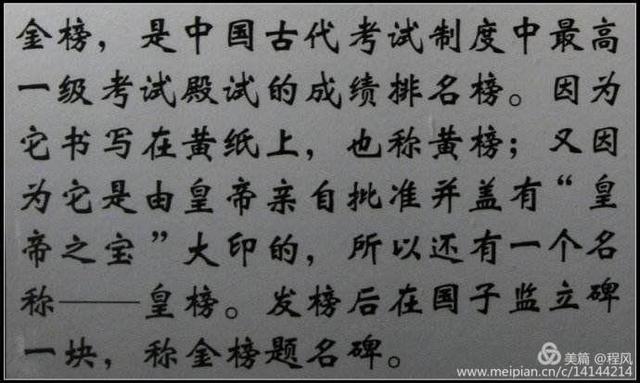 金榜，是中国古代考试制度中最高
一级考试殿试的成绩排名榜。因为
它书写在黄纸上，也称黄榜；又因
为它是由皇帝亲自批准并盖有“皇
帝之宝”大印的，所以还有一个名
称——皇榜。发榜后在国子监立碑
一块，称金榜题名碑。
美篇 @程风
www.meipian.cn/c/14144214